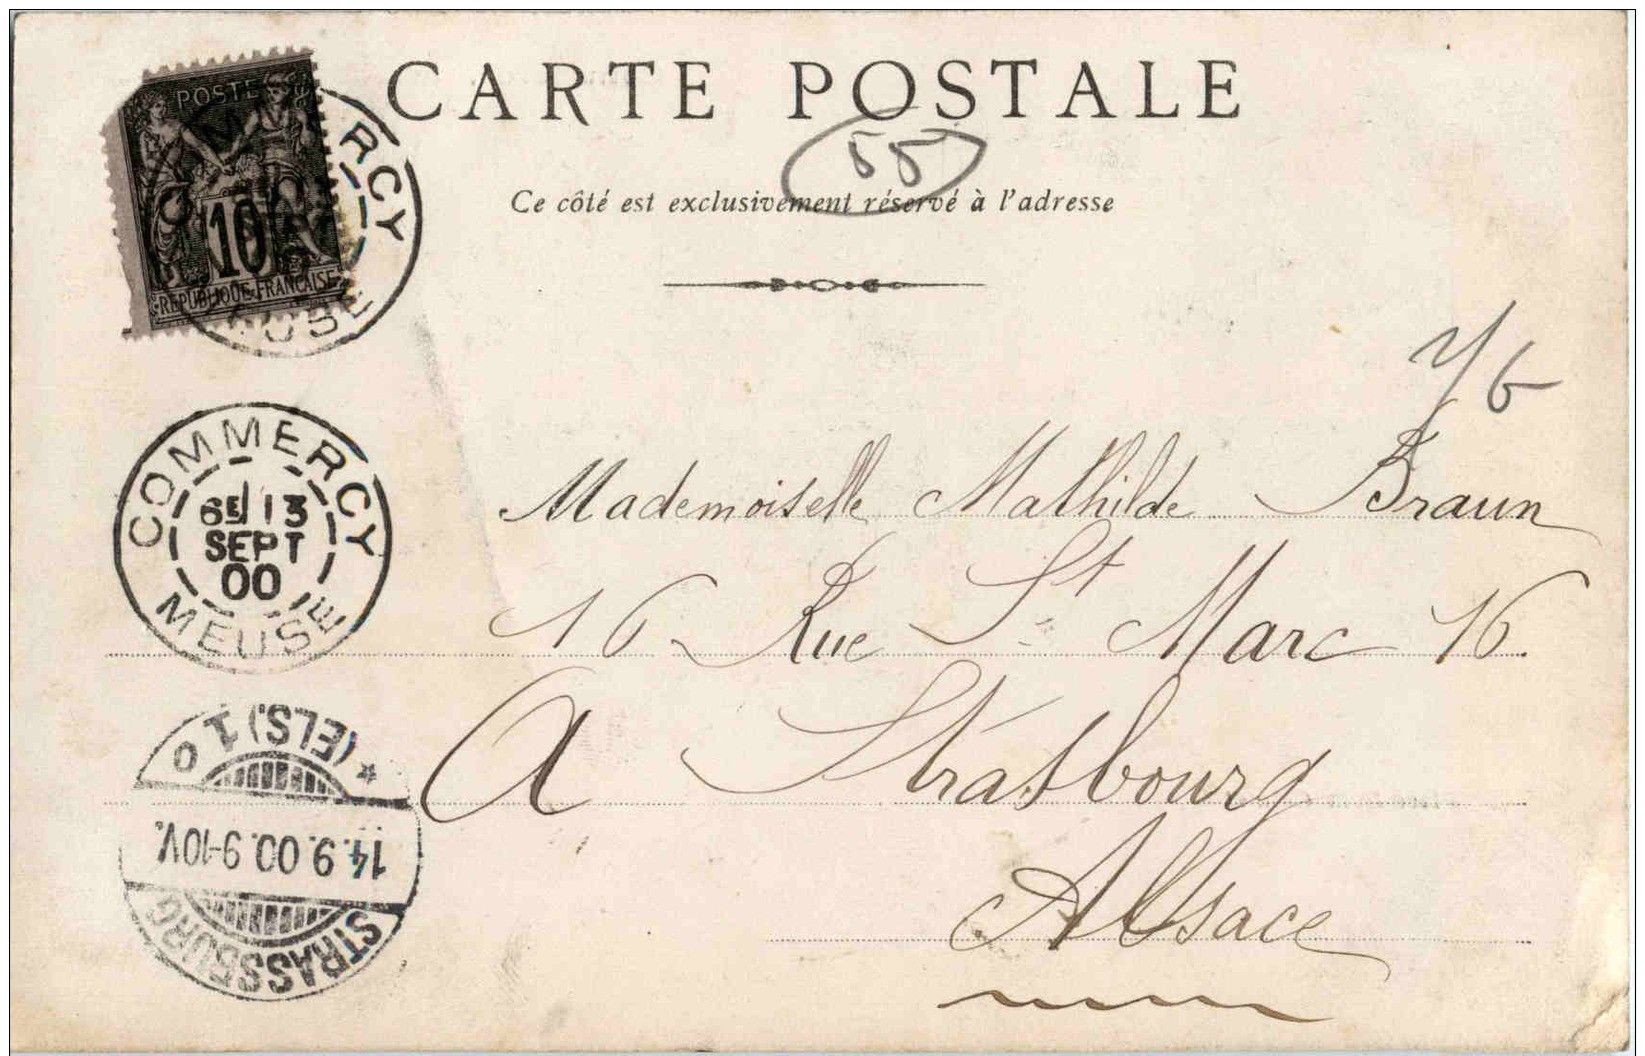 CARTE POSTALE
55
Ce côté est exclusivement réservé à l'adresse
POSTE
10
REPUBLIQUE FRANÇAISE
COMMERCY
6E 13
SEPT
00
MEUSE
Mademoiselle Mathilde Braun
16 Rue St Marc 16.
A Strasbourg
Alsace
STRASSBURG
14.9.00.9-10V.
* (ELS.) 1 o